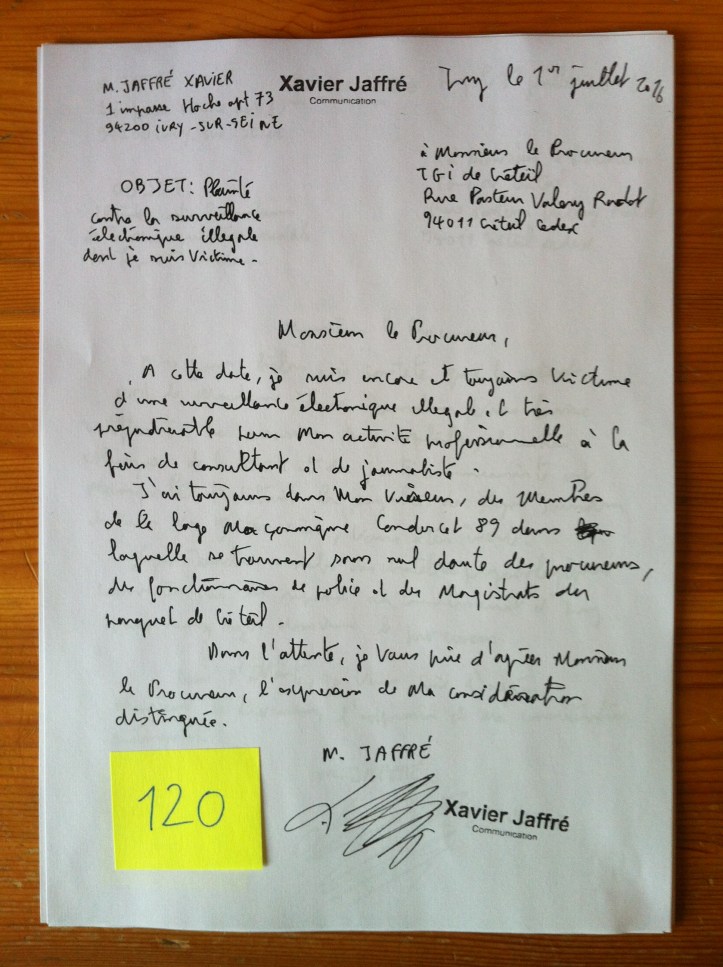 M. JAFFRÉ XAVIER
1 impasse Hoche apt 73
94200 IVRY-SUR-SEINE
Xavier Jaffré
Communication
Ivry le 1er juillet 2016
à Monsieur le Procureur
TGI de Créteil
Rue Pasteur Valery Radot
94011 Créteil Cedex
OBJET: Plainte
contre la surveillance
électronique illégale
dont je suis Victime.
Monsieur le Procureur,
A cette date, je suis encore et toujours Victime
d'une surveillance électronique illégale et très
préjudiciable pour mon activité professionnelle à la
fois de consultant et de journaliste.
J'ai toujours dans mon Viseur, des Membres
de la loge Maçonnique Condorcet 89 dans
laquelle se trouvent sans nul doute des procureurs,
des fonctionnaires de police et des Magistrats du
parquet de Créteil.
Dans l'attente, je Vous prie d'agréer Monsieur
le Procureur, l'expression de Ma considération
distinguée.
M. JAFFRÉ
120
Xavier Jaffré
Communication